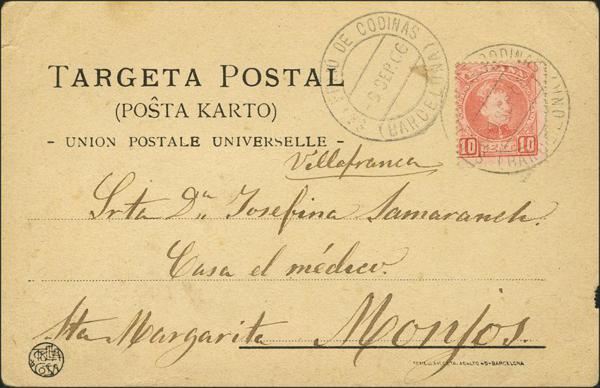 TARGETA POSTAL
(POŜTA KARTO)
- UNION POSTALE UNIVERSELLE -
DE CODINAS
SEP. 06
(BARCELONA)
CODINAS
10 10
Villafranca
Srta Dª. Josefina Samaranch.
Casa el médico.
Sta Margarita Monjos.
BARCELONA